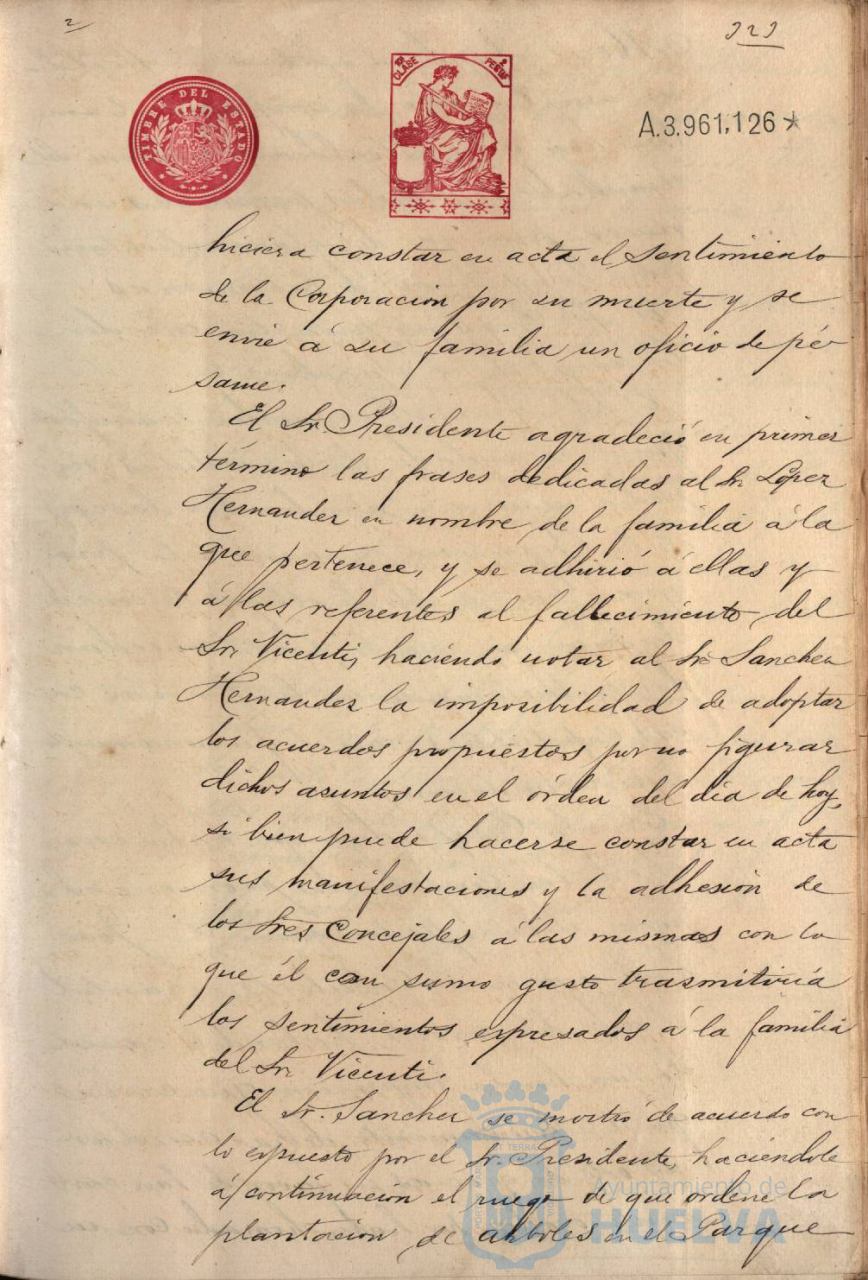 2
323
TIMBRE DEL ESTADO
10ª CLASE
2 PESETAS
A.3.961,126*
hiciera constar en acta el sentimiento
de la Corporación por su muerte y se
envíe á su familia un oficio de pé-
same.
El Sr. Presidente agradeció en primer
término las frases dedicadas al Sr López
Hernandez en nombre de la familia á la
que pertenece, y se adhirió á ellas y
á las referentes al fallecimiento del
Sr Vicenti, haciendo notar al Sr Sanchez
Hernandez la imposibilidad de adoptar
los acuerdos propuestos por no figurar
dichos asuntos en el órden del dia de hoy,
si bien puede hacerse constar en acta
sus manifestaciones y la adhesión de
los Sres Concejales á las mismas con lo
que él con sumo gusto trasmitiria
los sentimientos expresados á la familia
del Sr Vicenti.
El Sr. Sanchez se mostró de acuerdo con
lo expuesto por el Sr. Presidente, haciéndole
á continuación el ruego de que ordene la
plantacion de arboles en el Parque
Ayuntamiento de
HUELVA